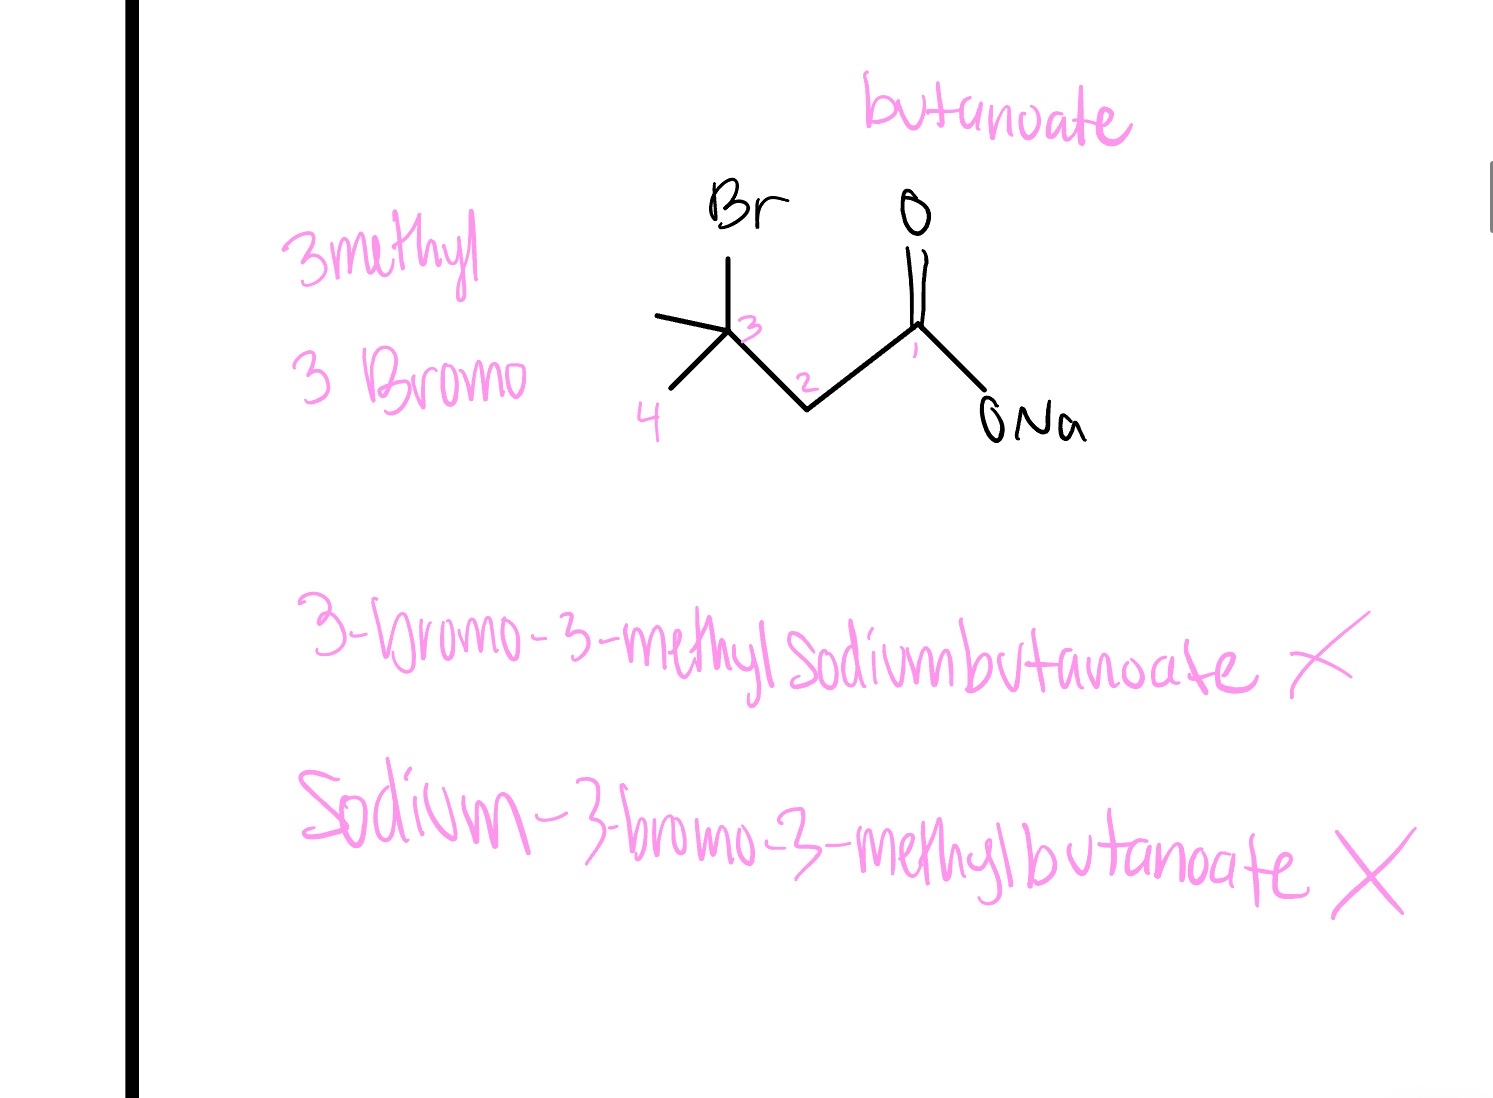 butanoate
Br O
3methyl
3
3 Bromo
2
1
4
ONa
3-bromo-3-methylsodiumbutanoate X
Sodium-3-bromo-3-methylbutanoate X